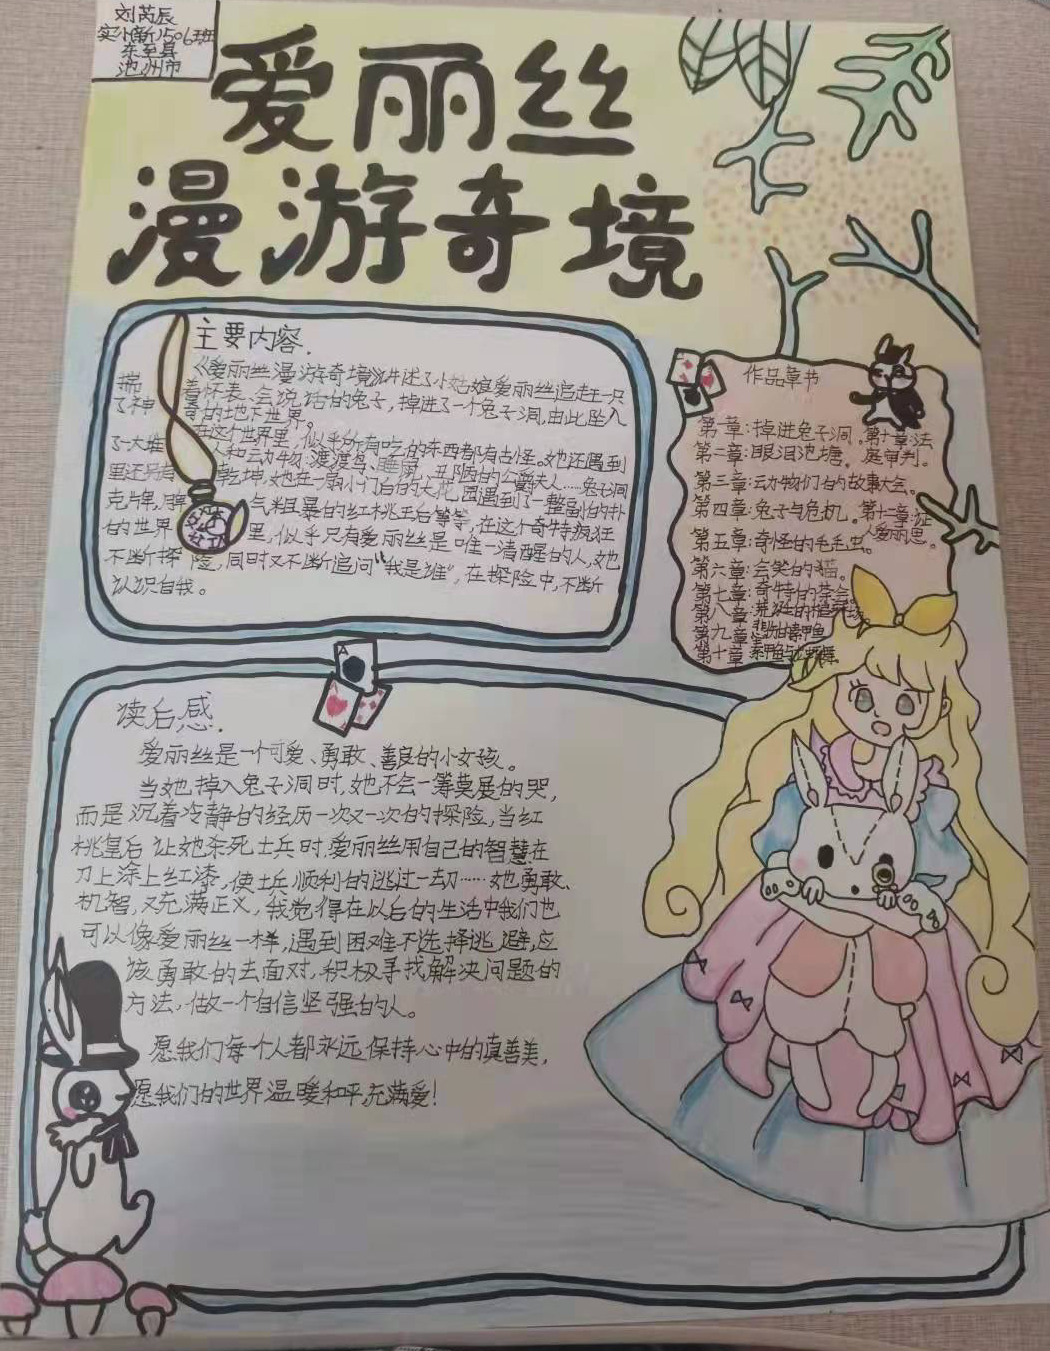 刘芮辰
实小新1506班
东至县
池州市
爱丽丝
漫游奇境
主要内容.
《爱丽丝漫游奇境》讲述了小姑娘爱丽丝追赶一只
揣着怀表、会说话的兔子，掉进了一个兔子洞，由此坠入
了神奇的地下世界。
在这个世界里，似乎所有吃的东西都有古怪。她还遇到
了大堆人和动物：渡渡鸟、睡鼠、丑陋的公爵夫人……兔子洞
里还另有乾坤，她在一扇小门后的大花园遇到了一整副的扑
克牌，牌气粗暴的红桃王后等等，在这个奇特疯狂
的世界里，似乎只有爱丽丝是唯一清醒的人，她
不断探险，同时又不断追问“我是谁”，在探险中，不断
认识自我。
作品章节
第一章：掉进兔子洞。第十一章：法
第二章：眼泪池塘。庭审判。
第三章：动物们的故事大会。
第四章：兔子与危机。第十二章：证
人爱丽思。
第五章：奇怪的毛毛虫。
第六章：会笑的猫。
第七章：奇特的茶会。
第八章：荒诞的槌球场。
第九章：悲伤的素甲鱼
第十章：素甲鱼
A
读后感.
爱丽丝是一个可爱、勇敢、善良的小女孩。
当她掉入兔子洞时，她不会一筹莫展的哭，
而是沉着冷静的经历一次又一次的探险，当红
桃皇后让她杀死士兵时，爱丽丝用自己的智慧在
刀上涂上红漆，使士兵顺利的逃过一劫……她勇敢、
机智，又充满正义，我觉得在以后的生活中我们也
可以像爱丽丝一样，遇到困难不选择逃避，应
该勇敢的去面对，积极寻找解决问题的
方法，做一个自信坚强的人。
愿我们每个人都永远保持心中的真善美，
愿我们的世界温暖和平，充满爱！